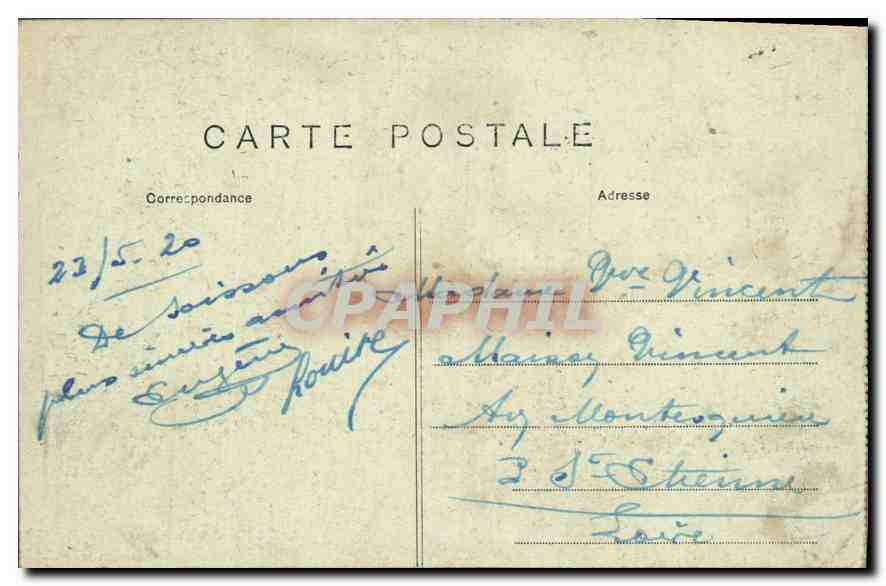 CARTE POSTALE
Correspondance
Adresse
23/5-20
De Soissons
plus sincères amitiés
Eugène Louise
Madame Vve Vincent
Vincent
Montesquieu
3 St-Etienne
Loire
CPAPHIL